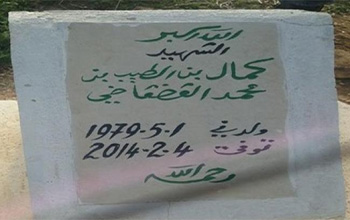 الله اكبر
الشهيد
كمال بن الطيب بن
محمد القضقاضي
ولد في 1-5-1979
توفي 4-2-2014
رحمه الله